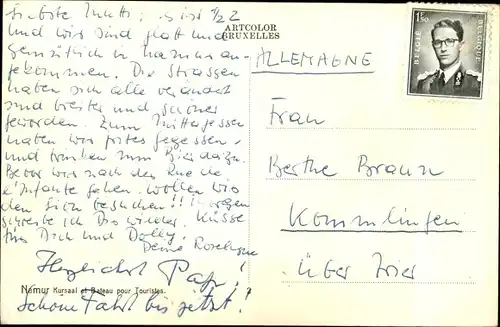 Liebste Mutti, es ist 1/2 2
und wir sind glatt und
gemütlich in Namur an-
gekommen. Die Strassen
haben sich alle verändert
sind breiter und schöner
geworden. Zum Mittagessen
haben wir gutes gegessen
und trinken zum Bier dazu.
Bevor wir nach der Rue de
l'Infante gehen wollen wir
den besuchen!! Morgen
schreibe ich Dir wieder. Küsse
für Dich und Dolly.
Deine
Herzlichst Papi!
Schöne Fahrt bis jetzt!
Namur Kursaal et Bateau pour Touristes.
ARTCOLOR
BRUXELLES
1F50
BELGIE BELGIQUE
ALLEMAGNE
Frau
Berthe Braun
Kommlingen
über Trier